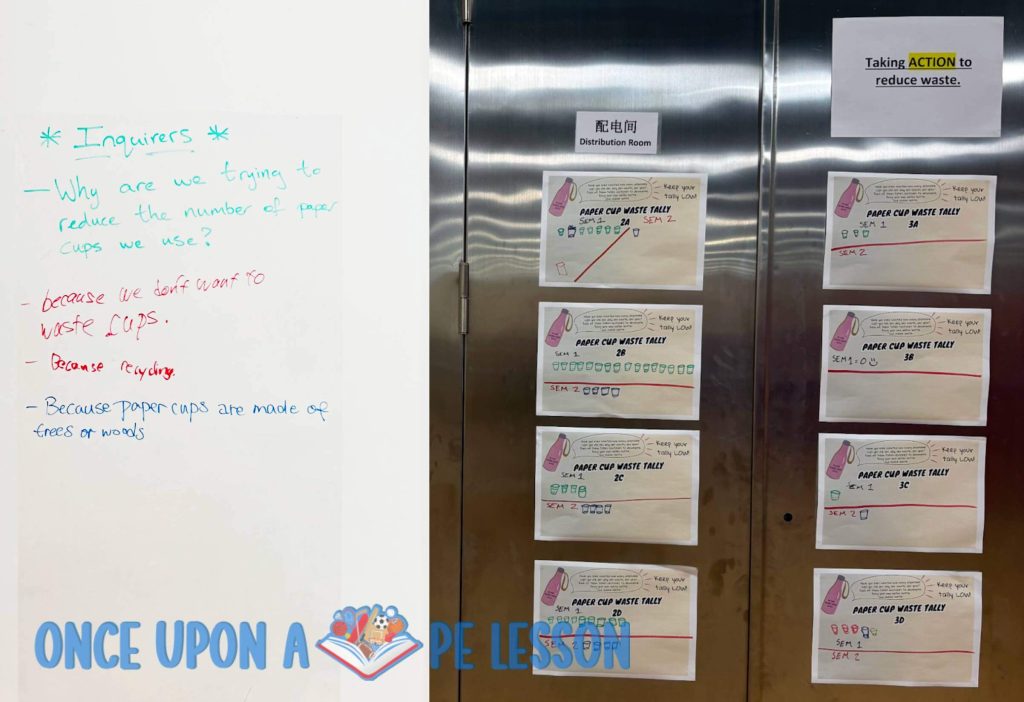 * Inquirers *
- Why are we trying to
reduce the number of paper
cups we use?
- because we don't want to
waste cups.
- Because recycling.
- Because paper cups are made of
trees or woods
配电间
Distribution Room
Taking ACTION to
reduce waste.
Keep your
tally LOW!
PAPER CUP WASTE TALLY
SEM 1 2A SEM 2
Keep your
tally LOW!
PAPER CUP WASTE TALLY
SEM 1 2B
SEM 2
Keep your
tally LOW!
PAPER CUP WASTE TALLY
SEM 1 2C
SEM 2
Keep your
tally LOW!
PAPER CUP WASTE TALLY
SEM 1 2D
Keep your
tally LOW!
PAPER CUP WASTE TALLY
SEM 1 3A
SEM 2
Keep your
tally LOW!
PAPER CUP WASTE TALLY
3B
SEM 1 = 0
Keep your
tally LOW!
PAPER CUP WASTE TALLY
SEM 1 3C
SEM 2
Keep your
tally LOW!
PAPER CUP WASTE TALLY
3D
SEM 1
SEM 2
ONCE UPON A PE LESSON